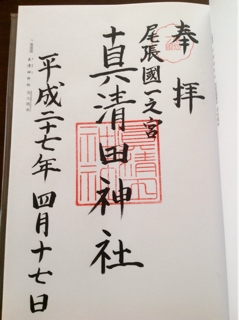 奉拝
尾張國一之宮
真清田神社
平成二十七年 四月十七日